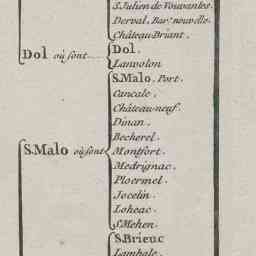 S. Julien de Vouvantes.
Derval, Bar.ie nouvelle.
Château-Briant.
Dol où sont
Dol.
Lanvolon
S. Malo où sont
S. Malo. Port.
Cancale.
Château-neuf.
Dinan.
Becherel.
Montfort.
Medrignac.
Ploermel.
Jocelin.
Loheac.
St Mehen.
S. Brieuc
Lamballe.